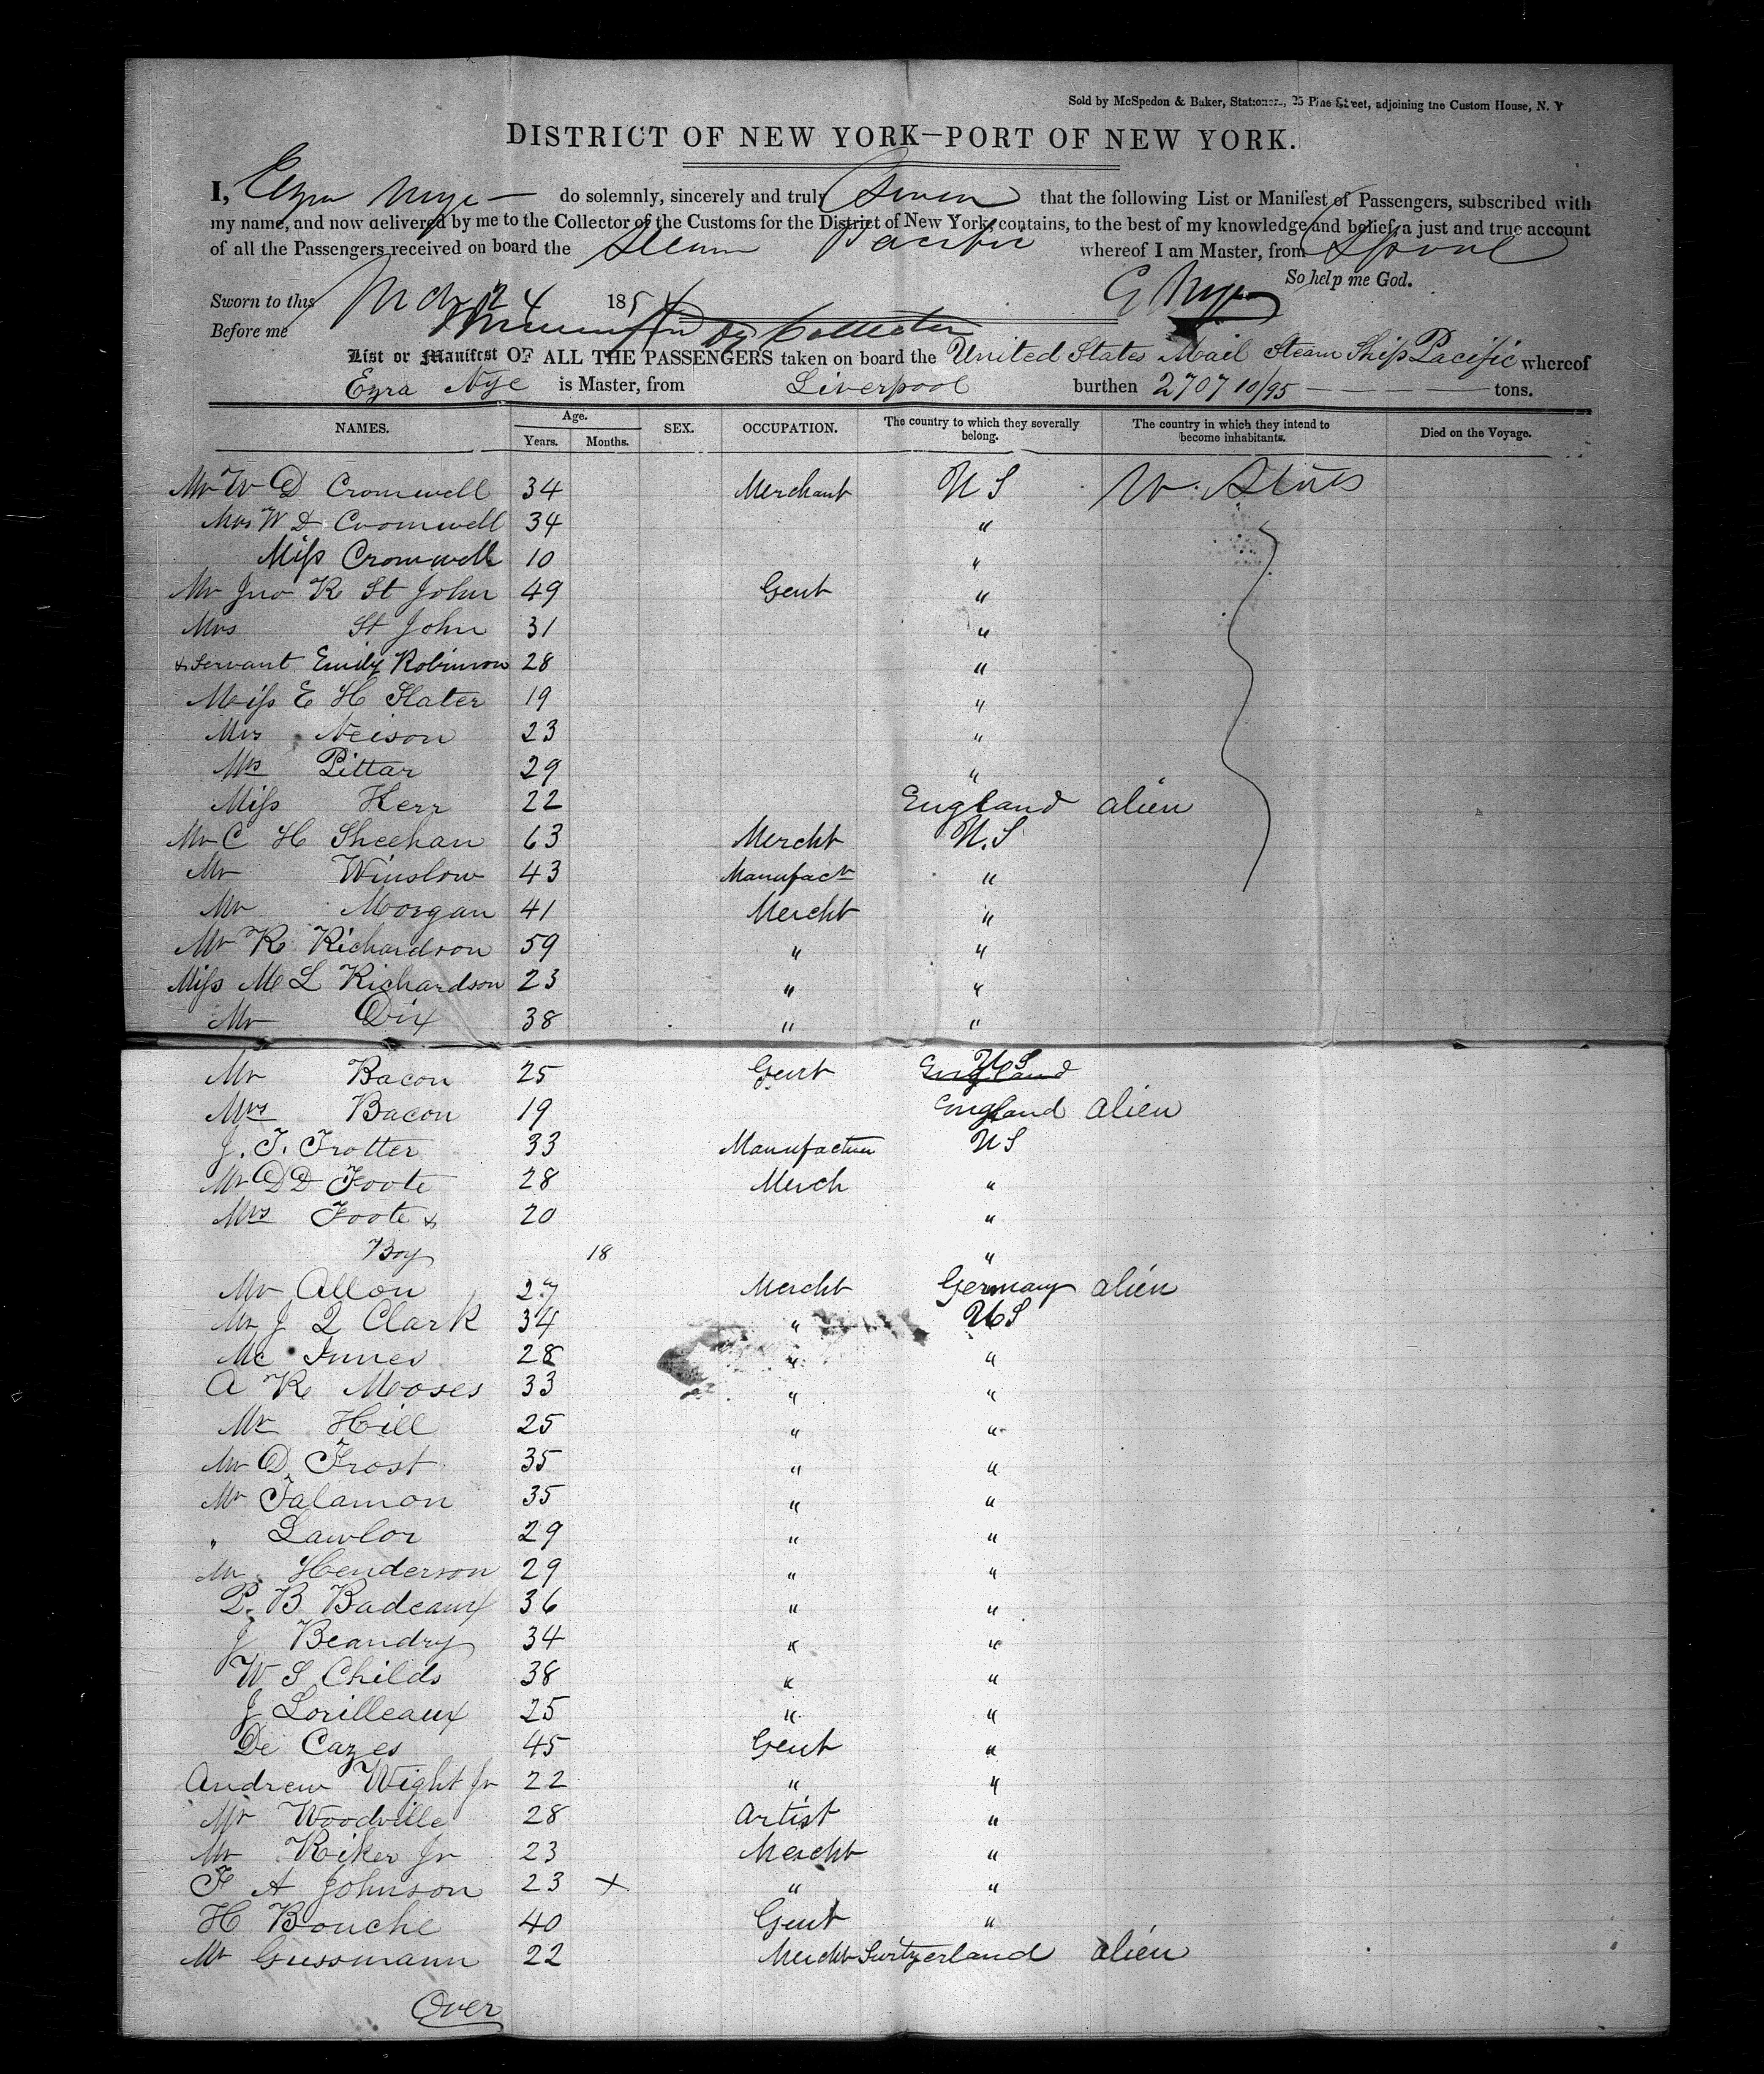 Sold by McSpedon & Baker, Stationers, 25 Pine Street, adjoining the Custom House, N. Y
DISTRICT OF NEW YORK—PORT OF NEW YORK.
I, Ezra Nye — do solemnly, sincerely and truly Swear that the following List or Manifest of Passengers, subscribed with
my name, and now delivered by me to the Collector of the Customs for the District of New York, contains, to the best of my knowledge and belief, a just and true account
of all the Passengers received on board the Steam Pacific whereof I am Master, from Lpool
So help me God.
Sworn to this Mch 24 1854 E Nye
Before me Dy Collector
List or Manifest OF ALL THE PASSENGERS taken on board the United States Mail Steam Ship Pacific whereof
Ezra Nye is Master, from Liverpool burthen 2707 10/95 — — — tons.
NAMES. Age. SEX. OCCUPATION. The country to which they severally belong. The country in which they intend to become inhabitants. Died on the Voyage.
Years. Months.
Mr W D Cromwell 34 Merchant U S U. States
Mrs W D Cromwell 34 "
Miss Cromwell 10 "
Mr Jno R St John 49 Gent "
Mrs St John 31 "
& Servant Emily Robinson 28 "
Miss E H Slater 19 "
Mrs Neison 23 "
Mrs Pittar 29 "
Miss Kerr 22 England alien
Mr C H Sheehan 63 Mercht U.S
Mr Winslow 43 Manufactr "
Mr Morgan 41 Mercht "
Mr R Richardson 59 " "
Miss M L Richardson 23 " "
Mr Dix 38 " "
Mr Bacon 25 Gent England U S
Mrs Bacon 19 England alien
J. T. Trotter 33 Manufacturer U S
Mr D D Foote 28 Merch "
Mrs Foote & 20 "
Boy 18 "
Mr Allon 27 Mercht Germany alien
Mr J Q Clark 34 " U S
Mc Innes 28 " "
A R Moses 33 " "
Mr Hill 25 " "
Mr D. Frost 35 " "
Mr Talamon 35 " "
" Lawlor 29 " "
Mr Henderson 29 " "
P. B Badeaux 36 " "
J Beaudry 34 " "
W S Childs 38 " "
J Lorilleaux 25 " "
De Cazes 45 Gent "
Andrew Wight Jr 22 " "
Mr Woodville 28 Artist "
Mr Riker Jr 23 Mercht "
F A Johnson 23 x " "
H Bouche 40 Gent "
Mr Gussmann 22 Mercht Switzerland alien
Over